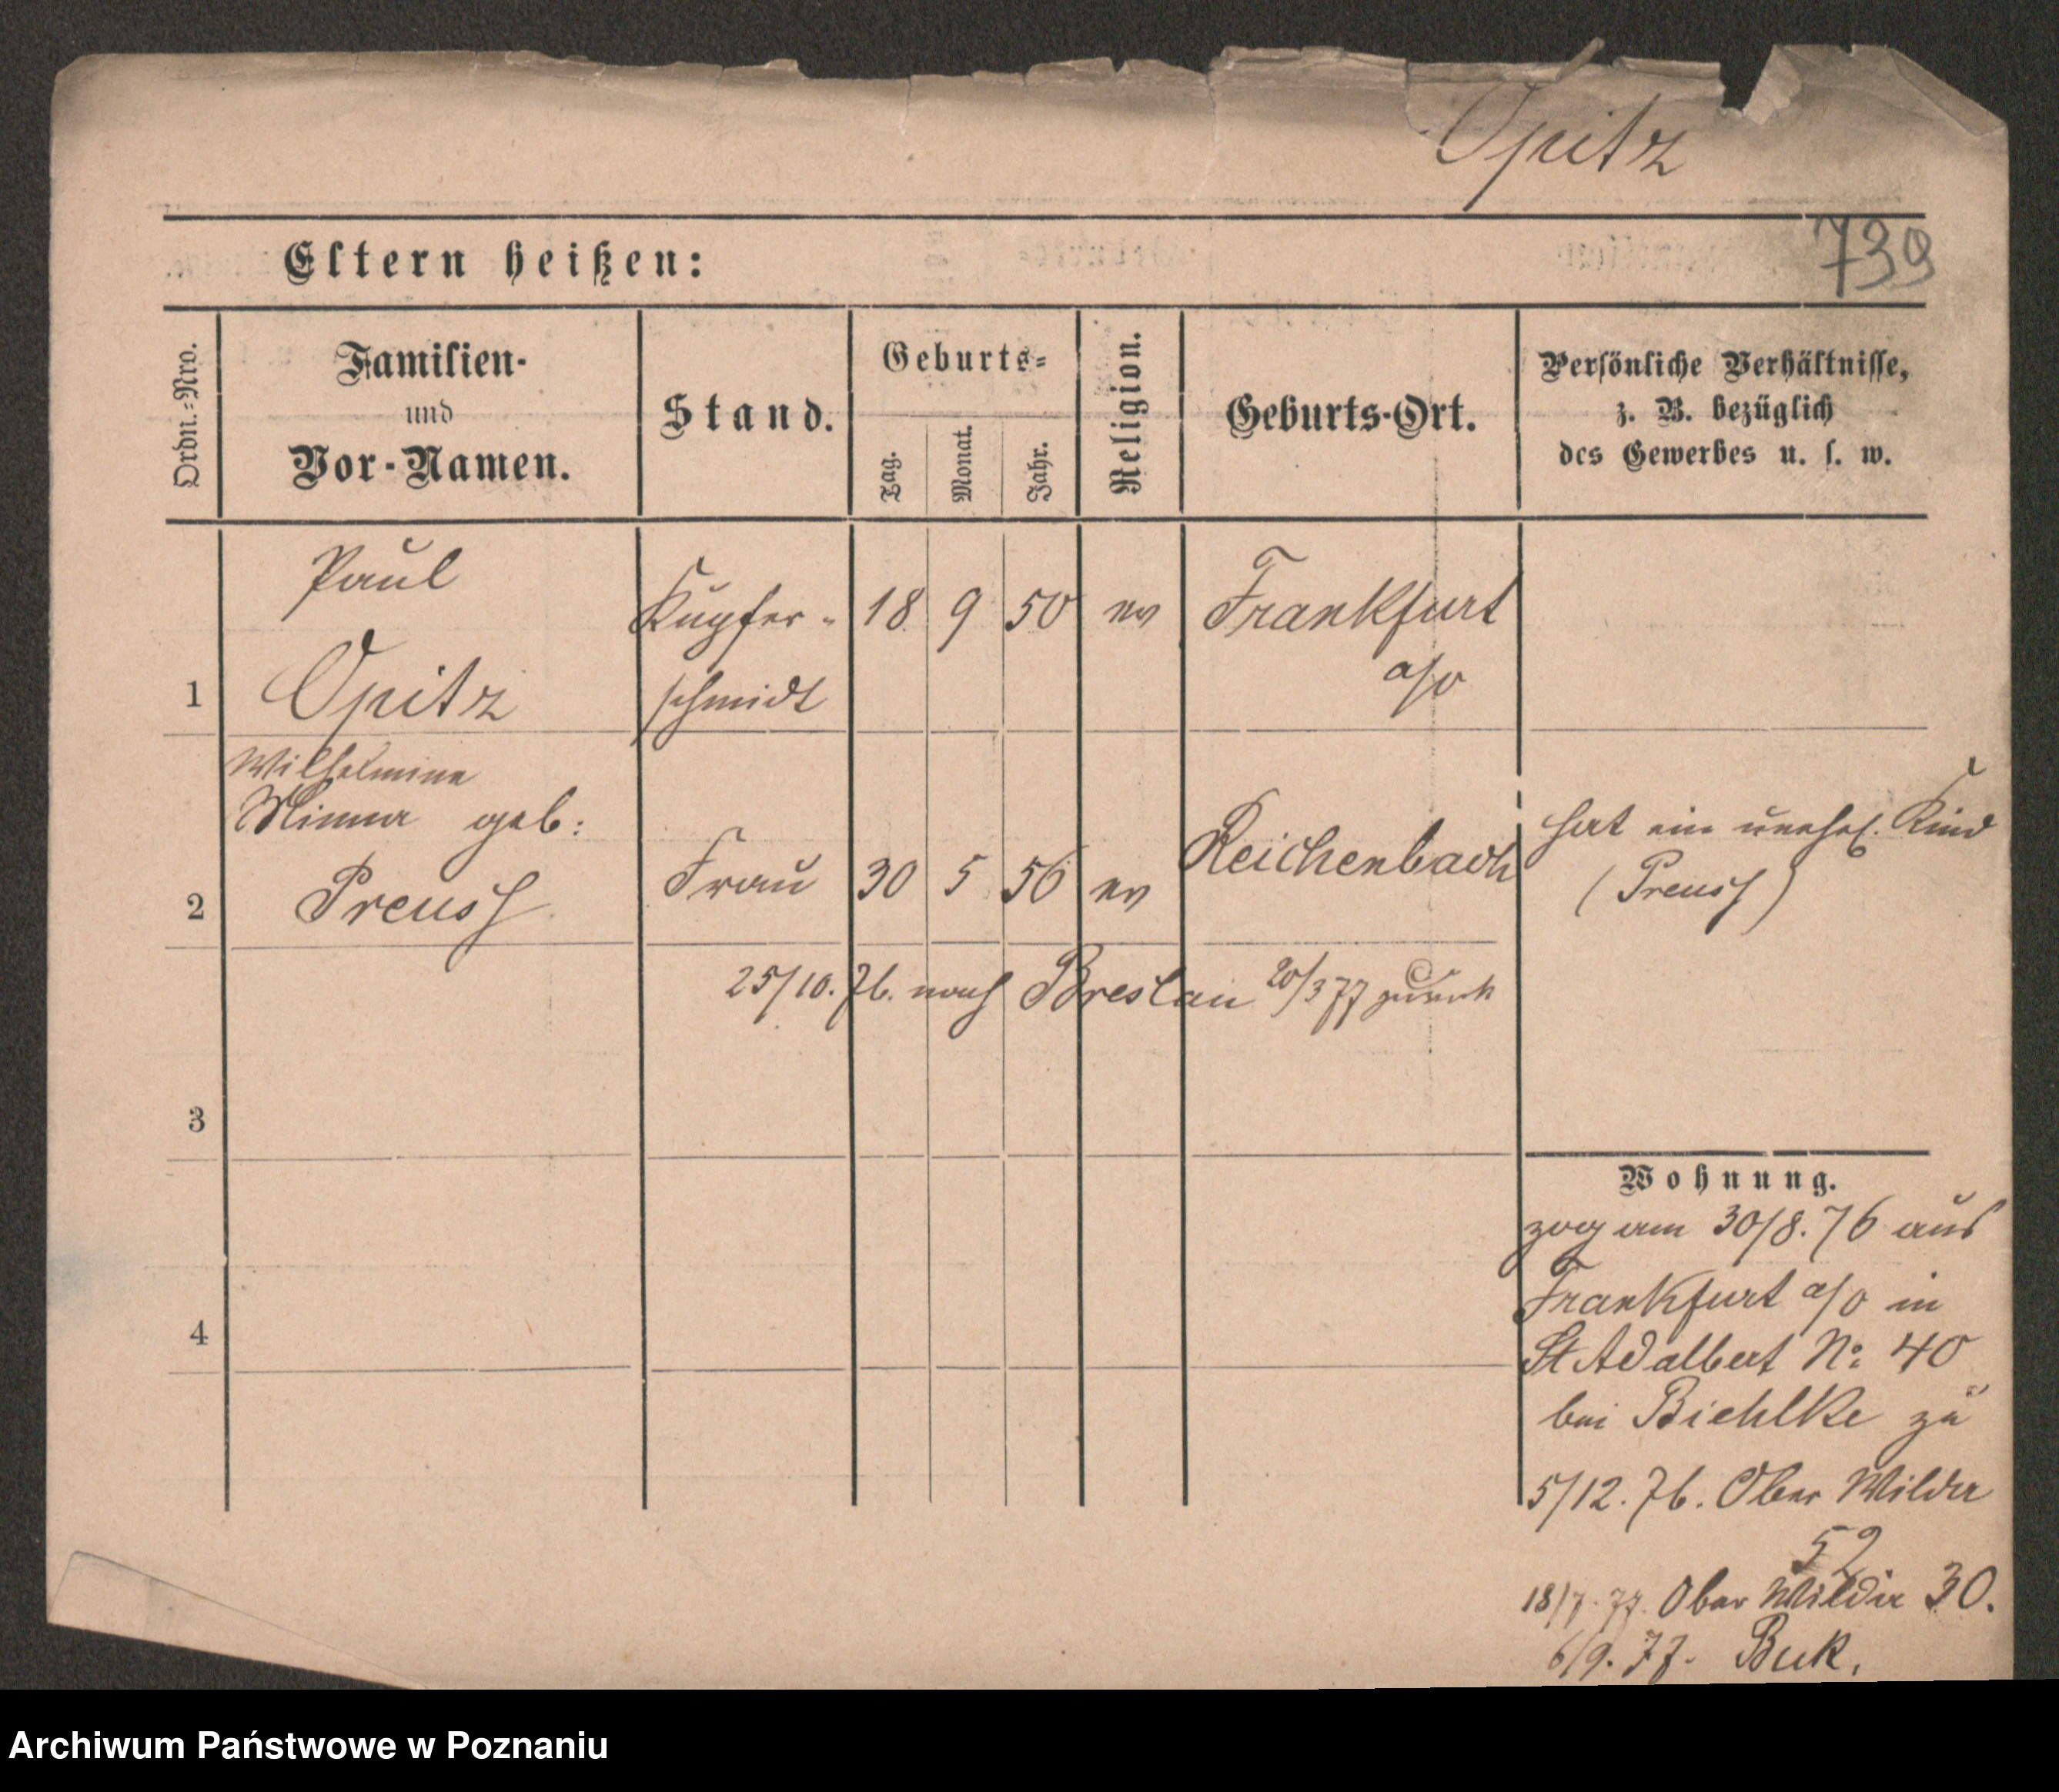 Opitz
739
Eltern heißen:
Ordn.=Nro.
Familien-
und
Vor-Namen.
Stand.
Geburts=
Tag.
Monat.
Jahr.
Religion.
Geburts-Ort.
Persönliche Verhältnisse,
z. B. bezüglich
des Gewerbes u. s. w.
Paul
Kupfer- 18 9 50 ev Frankfurt
a/o
1 Opitz schmidt
Wilhelmine
Minna geb:
hat ein unehel. Kind
2 Preuss Frau 30 5 56 ev Reichenbach
(Preuss)
25/10. 76. nach Breslau 20/3 77 zurück
3
Wohnung.
zog am 30/8. 76 aus
Frankfurt a/o in
4
St Adalbert No: 40
bei Biehlke zu
5/12. 76. Ober Wilda
52
18/7. 77. Ober Wilda 30.
6/9. 77. Buk.
Archiwum Państwowe w Poznaniu